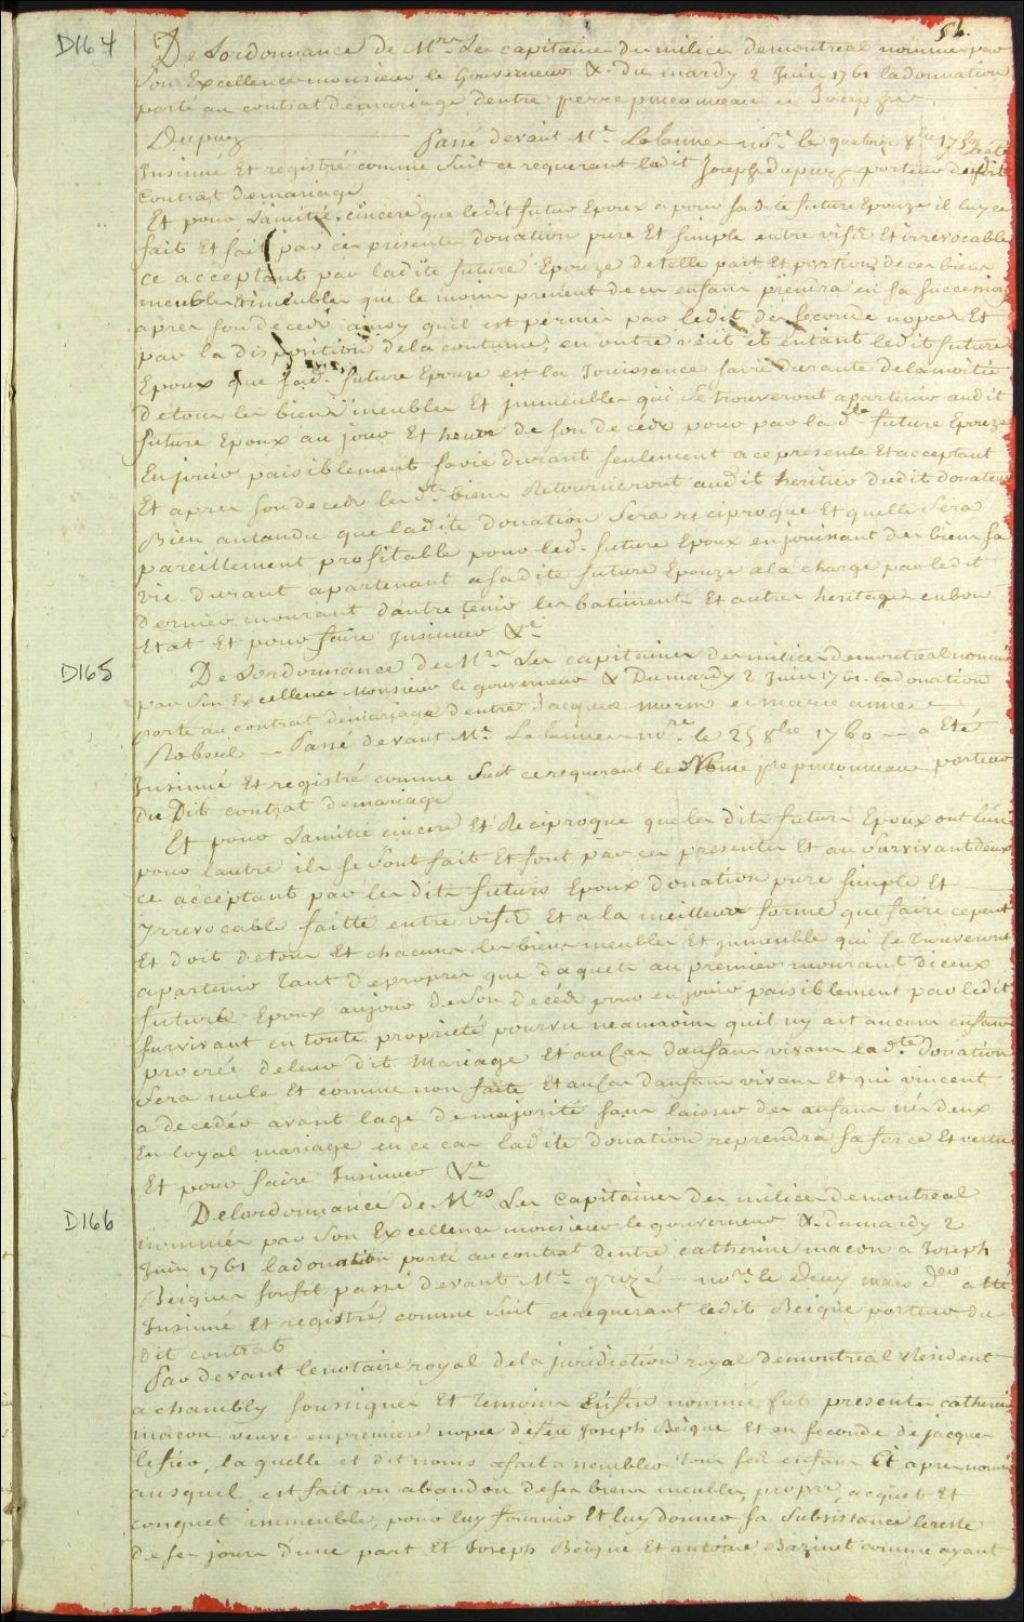 56.
D164
De Lordonnance de Mrs Les capitaines de milices de montreal nommés par
Son Excellence monsieur le Gouverneur &. du mardy 2 Juin 1761 la donnation
porté au contrat de mariage dentre pierre pineonneau et Josephe
Dupuy Passé devant Me Lalanne nore le quatorze 8bre 1759 a été
Insinué Et registré comme suit ce requerant ladit Joseph dupuy porteur dudit
Contrat de mariage
Et pour Lamitié cincere que ledit futur Epoux a pour sadite future Epouze il luy a
fait Et fait par ces presentes donation pure Et simple entre vifs Et irrevocable
ce acceptant par ladite future Epouze de telle part Et portions de ces biens
meubles immeubles que le moins prenent de ces enfans prenira en sa succession
apres son decedé ainsy quil est permis par ledit des seconde nopces Et
par la disposition de la coutume, en outre veut et entant ledit future
Epoux que lad. future Epouze est la Jouissance sa vie durante de la moitié
de tous les biens meubles Et immeubles qui se trouveront apartenir audit
future Epoux au jour Et heure de son decéde pour par lade future Epouze
En jouir paisiblement sa vie durant seulement a ce presente Et acceptant
Et apres son decede lesdts biens Retourneront audit heritier dudit donateur
Bien antandu que ladite donation sera reciproque Et quelle sera
pareillement profitable pour led. future Epoux en jouissant des biens sa
vie durant apartenant a sadite future Epouze a la charge par ledit
dernier mourant dantretenir les batiments Et autres heritages en bon
Etat Et pour faire Insinuer &c
D165
De Lordonnance de Mrs Les capitaines des milices de montreal nommé
par Son Excellence Monsieur le gouverneur & Du mardy 2 Juin 1761. la donation
porté au contrat de mariage dentre Jacques morin et marie anne
Robeul Passé devant Me Lalanne nore le 25 8bre 1760 a Eté
Insinué Et registré comme suit ce requerant le Nomé pre pineonneau porteur
du Dit contrat de mariage
Et pour Lamitié cincere Et Reciproque que les dits futurs Epoux ont lun
pour lautre ils se sont fait Et font par ces presentes Et au Survivant deux
ce acceptant par les dits futurs Epoux donation pure simple Et
Irrevocable faitte entre vifs Et a la meilleur forme que faire ce peut
Et doit de tous Et chacuns les biens meubles Et immeuble qui se trouveront
apartenir tant de propres que daquets au premier mourant diceux
future Epoux au jour de son decéde pour en jouir paisiblement par ledit
survivant en toute proprieté pourvu neamoins quil ny ait aucuns enfans
procréé de leur dit Mariage Et au Cas danfans vivans lade donation
sera nule Et comme non faite Et au Cas danfans vivans Et qui vincent
a decedér avant lage de majorité sans laisser des anfans nés deux
En loyal mariage en ce cas ladite donation reprendra sa force Et vertu
Et pour faire Insinuer &c
D166
De Lordonnance de Mrs Les Capitaines des milices de montreal
nommés par Son Excellence monsieur le gouverneur &. du mardy 2
Juin 1761 la donation porté au contrat dentre catherine macon a Joseph
Beigue son fils passé devant Me grizé nore le Deux mars der a été
Insinué Et registré comme suit ce requerant ledit Beigue porteur du
dit contrat
Par devant le notaire royal de la juridiction royal de montreal Resident
a chambly soussignes Et temoins Enfin nommé fut presente catherine
macon veuve en premiere nopce de feu Joseph Beigue Et en seconde de jacques
lefiev, laquelle et dit nous afait assembler tous ses enfans Et apres nommé
ausquel est fait un abandon de ses biens meubles, propre, acquet Et
conquet immeuble, pour luy fournir Et luy donner sa Subsistance le reste
de ses jours dune part Et Joseph Beigue Et antoine Bazinet comme ayant